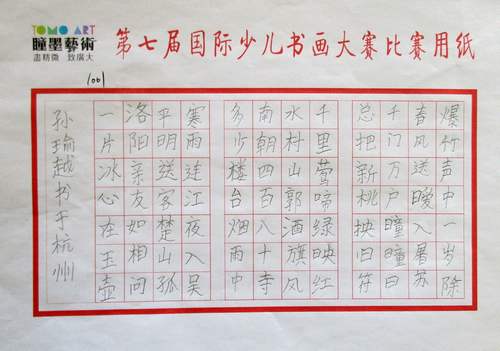 TOMO ART
瞳墨藝術
盡精微 致廣大
第七届国际少儿书画大赛比赛用纸
1001
爆竹声中一岁除
春风送暖入屠苏
千门万户曈曈日
总把新桃换旧符
千里莺啼绿映红
水村山郭酒旗风
南朝四百八十寺
多少楼台烟雨中
寒雨连江夜入吴
平明送客楚山孤
洛阳亲友如相问
一片冰心在玉壶
孙瑜越书于杭州